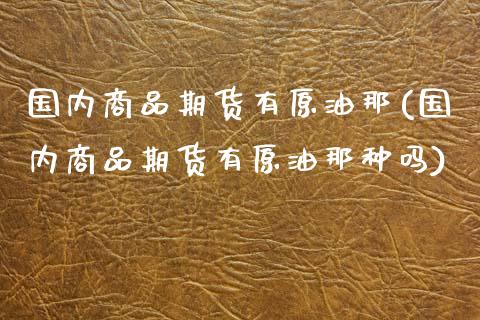 国内商品期货有原油那(国
内商品期货有原油那种吗)